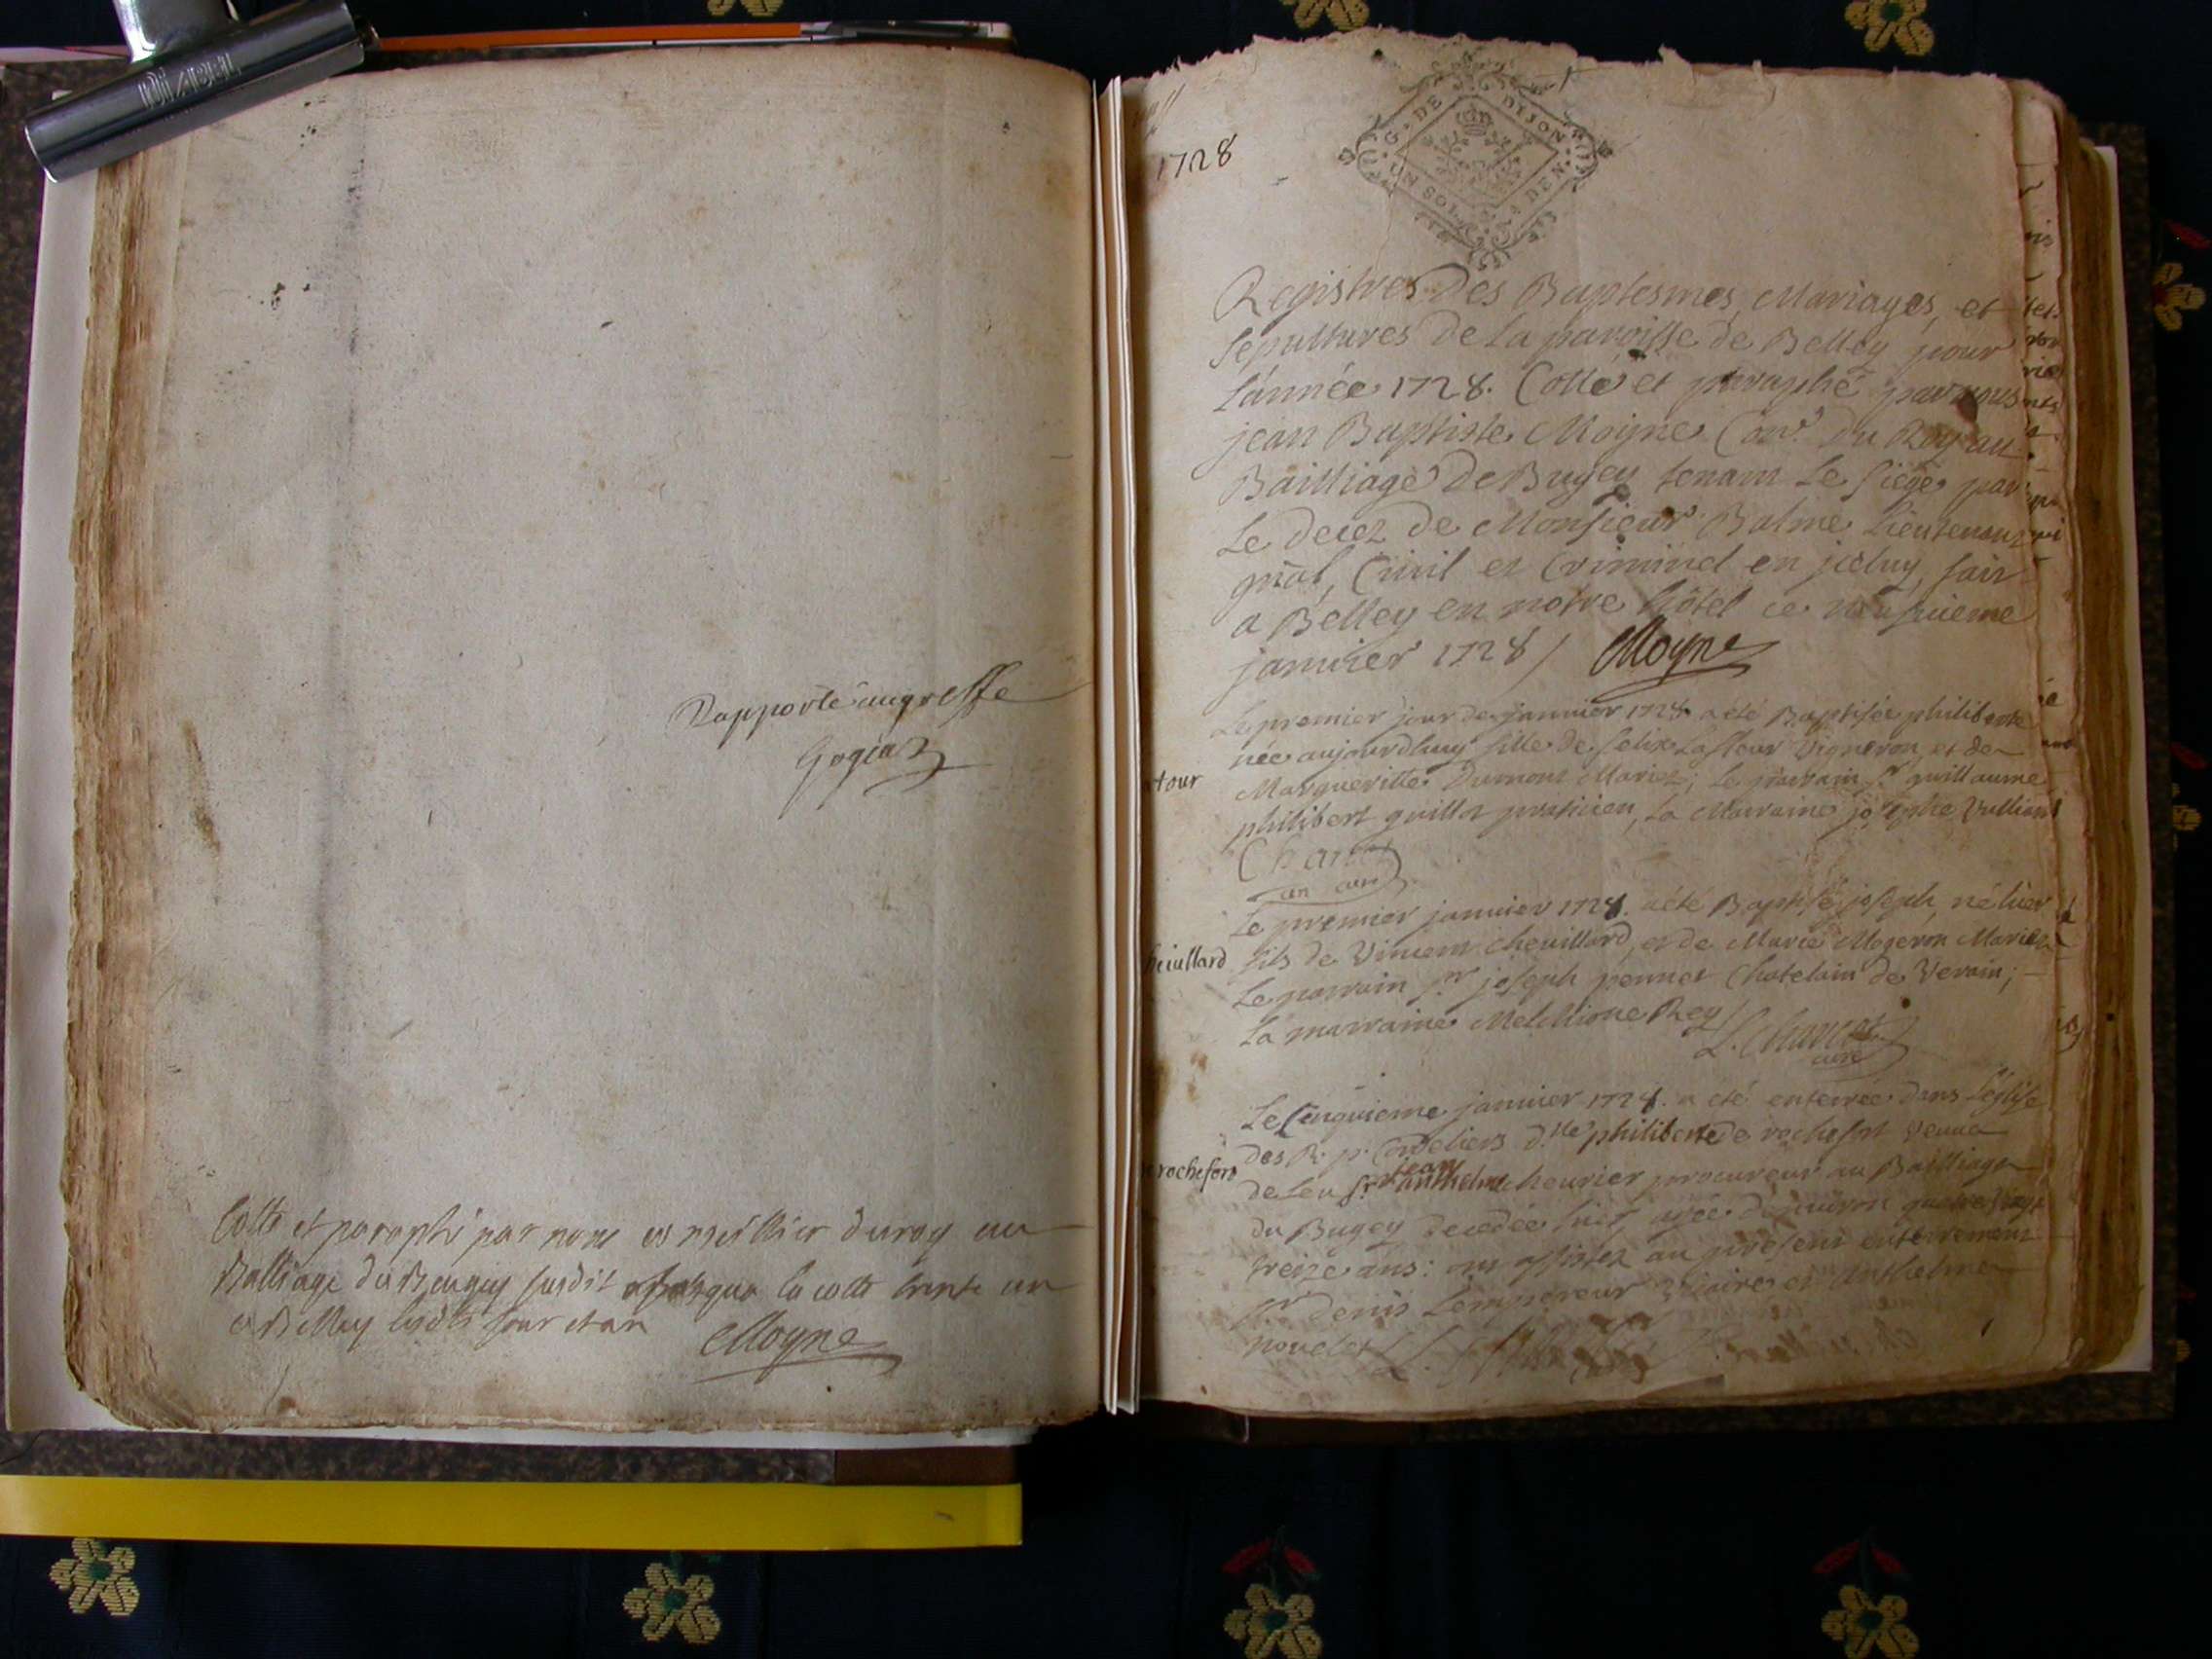 DIABEL
Rapporté au greffe
Cotté et paraphé par nous conseiller du roy au
Balliage du Beugey susdit jusqua la cotte trente un
a Belley lesdits jour et an Moyne
1728
G. DE DIJON
UN SOL DEN
Registres Des Baptesmes, Mariages, et
sepultures de La paroisse de Belley pour
L'année 1728. Cotté et paraphé par nous
jean Baptiste Moyne Conr. Du Roy au
Bailliage De Bugey tenant Le siege par
Le decez de Monsieur Balme Lieutenant
gnal, Civil et Criminel en jceluy, fait
a Belley en notre hôtel ce neufvieme
janvier 1728 / Moyne
Le premier jour de janvier 1728 a eté Baptisée philiberte
née aujourdhuy fille de felix Lafleur vigneron et de
Margueritte Dumont Mariez; Le parrain Sr. guillaume
philibert guillot praticien, La Marraine josephe Vulliam
tour
curé
Le premier janvier 1728. a eté Baptisé joseph, né hier
fils de Vincent chevillard, et de Marie Mogeron Mariez
heiullard
Le parrain Sr. joseph pennet Chatelain de Verain;
La marraine Melchione Rey /
curé
Le Cinquieme janvier 1728. a eté enterrée dans L'église
des R. p. Cordeliers d.lle philiberte de rochefort veuve
rochefort
de feu Sr. jean anthelme chevrier procureur au Bailliage
du Bugey decedée hier, agée d'environ quatre vingt
treize ans: ont assistez au present enterrement
Sr. denis Lempereur vicaire et Anthelme
nouelet